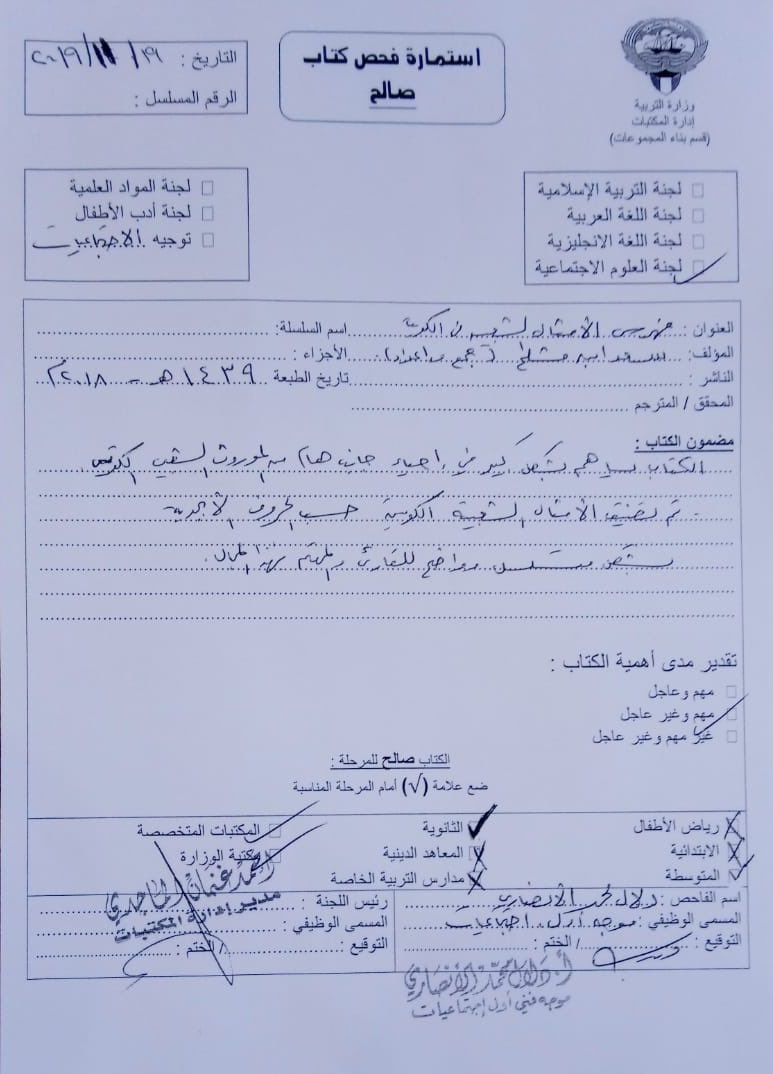 وزارة التربية
إدارة المكتبات
(قسم بناء المجموعات)
استمارة فحص كتاب
صالح
التاريخ : ٢٠١٩/١١/٢٩
الرقم المسلسل :
لجنة التربية الإسلامية
لجنة اللغة العربية
لجنة اللغة الانجليزية
لجنة العلوم الاجتماعية
لجنة المواد العلمية
لجنة أدب الأطفال
توجيه الاجتماعيات
العنوان : فهرس الأمثال الشعبية في الكويت اسم السلسلة:
المؤلف: (جمع وإعداد) الأجزاء :
الناشر : تاريخ الطبعة ١٤٣٩ هـ - ٢٠١٨ م
المحقق / المترجم
مضمون الكتاب :
الكتاب يساهم بشكل كبير في إحياء جانب هام من الموروث الشعبي الكويتي
. تم تصنيف الأمثال الشعبية الكويتية حسب الحروف الأبجدية
بشكل متسلسل وواضح للقارئ والمهتم بهذا المجال.
تقدير مدى أهمية الكتاب :
مهم وعاجل
مهم وغير عاجل
غير مهم وغير عاجل
الكتاب صالح للمرحلة :
ضع علامة (√) أمام المرحلة المناسبة
رياض الأطفال
الابتدائية
المتوسطة
الثانوية
المعاهد الدينية
مدارس التربية الخاصة
المكتبات المتخصصة
مكتبة الوزارة
اسم الفاحص : دلال محمد الأنصاري
المسمى الوظيفي : موجه أول اجتماعيات
التوقيع : / الختم :
رئيس اللجنة :
المسمى الوظيفي :
التوقيع : / الختم :
مدير إدارة المكتبات
أ. دلال محمد الأنصاري
موجه فني أول إجتماعيات